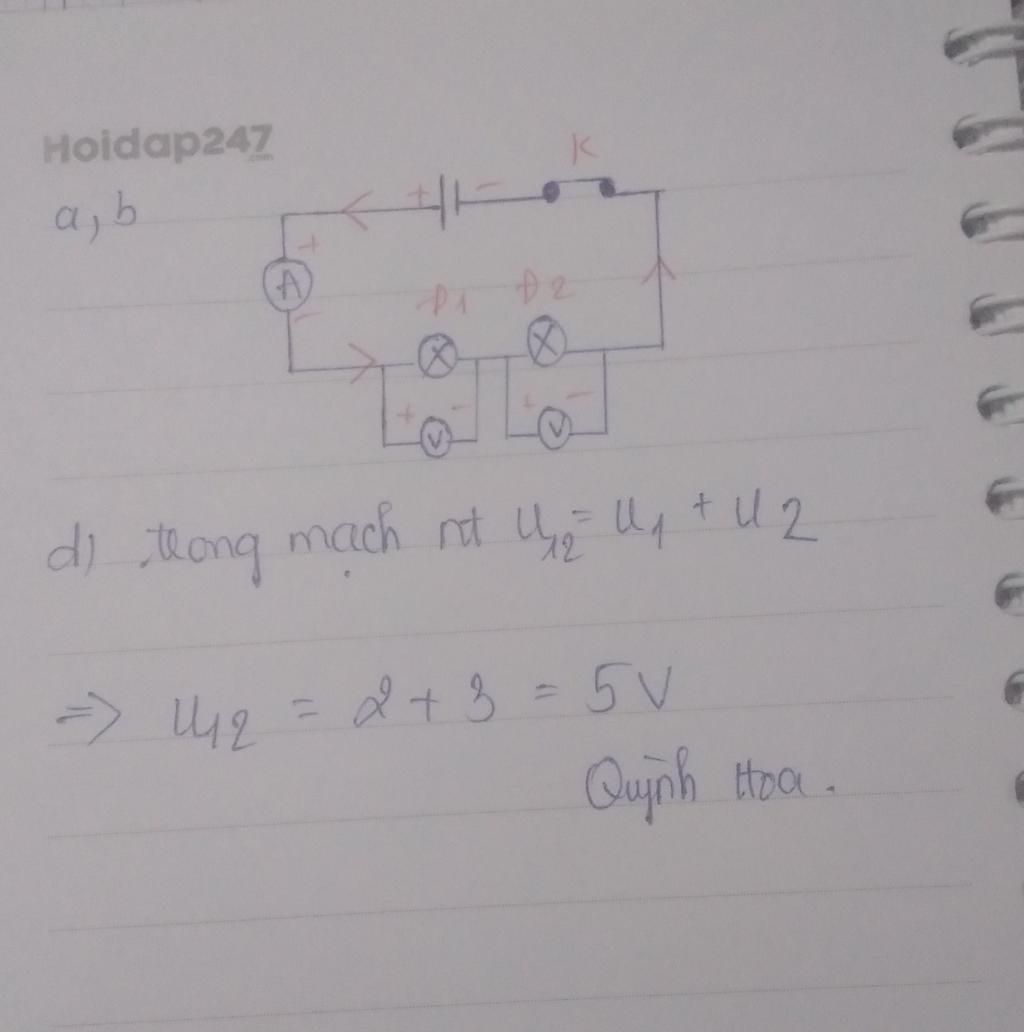 Hoidap247
K
a, b
+ -
+
A
-
Đ1 Đ2
X X
+ - + -
V V
d) trong mạch nt U12 = U1 + U2
=> U12 = 2 + 3 = 5V
Quỳnh Hoa.